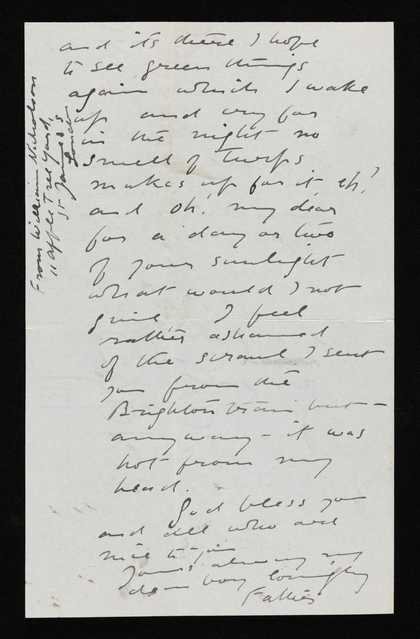 and its there I hope
to see green things
again which I wake
up and cry for
in the night no
smell of turps
makes up for it eh?
and oh! my dear
for a day or two
of your sunlight
what would I not
give I feel
rather ashamed
of the scrawl I sent
you from the
Brighton train but –
anyway – it was
hot from my
head.
God bless you
and all who are
nice to you
Yours always my
dear boy lovingly
Father
From William Nicholson
11 Apple Tree Yard,
St James's
London